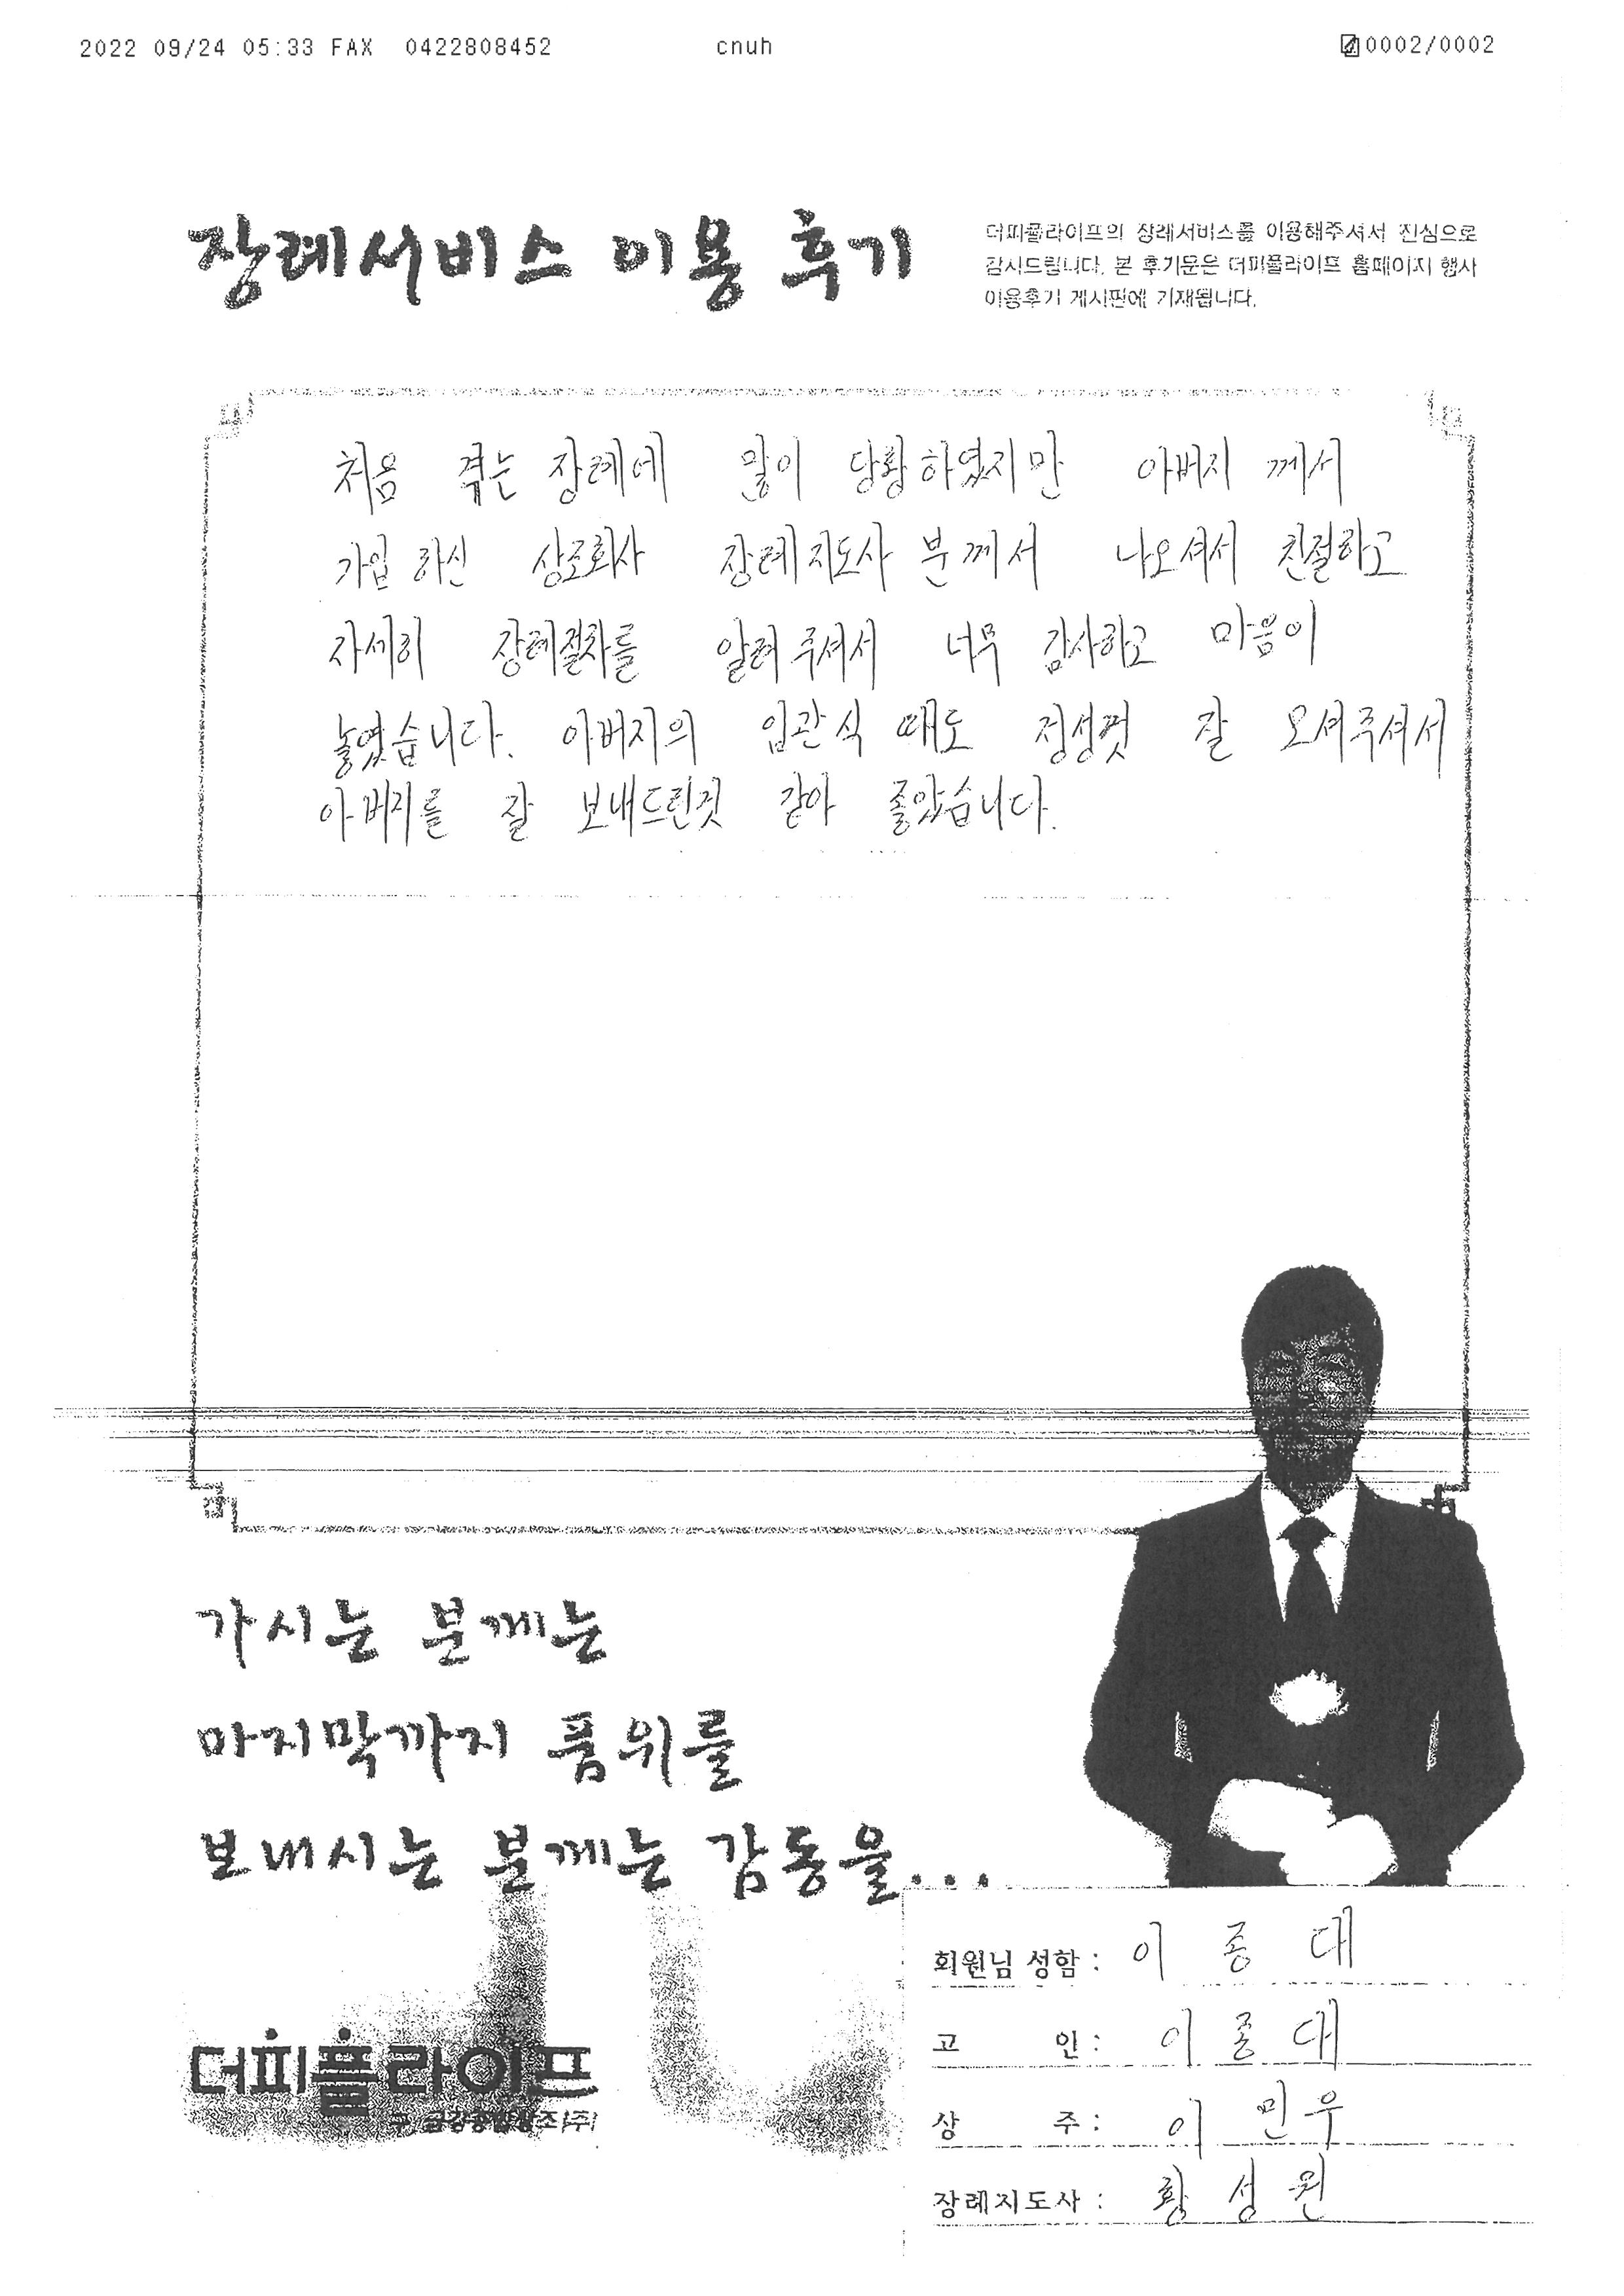 2022 09/24 05:33 FAX 0422808452 cnuh 0002/0002
장례서비스 이용 후기
더피플라이프의 장례서비스를 이용해주셔서 진심으로
감사드립니다. 본 후기문은 더피플라이프 홈페이지 행사
이용후기 게시판에 기재됩니다.
처음 겪는 장례에 많이 당황하였지만 아버지 께서
가입 하신 상조회사 장례지도사 분께서 나오셔서 친절하고
자세히 장례절차를 알려주셔서 너무 감사하고 마음이
놓였습니다. 아버지의 입관식 때도 정성껏 잘 모셔주셔서
아버지를 잘 보내드린것 같아 좋았습니다.
가시는 분께는
마지막까지 품위를
보내시는 분께는 감동을...
회원님 성함 : 이종대
고 인 : 이종대
상 주 : 이민우
장례지도사 : 황성원
더피플라이프
구 금강종합상조(주)